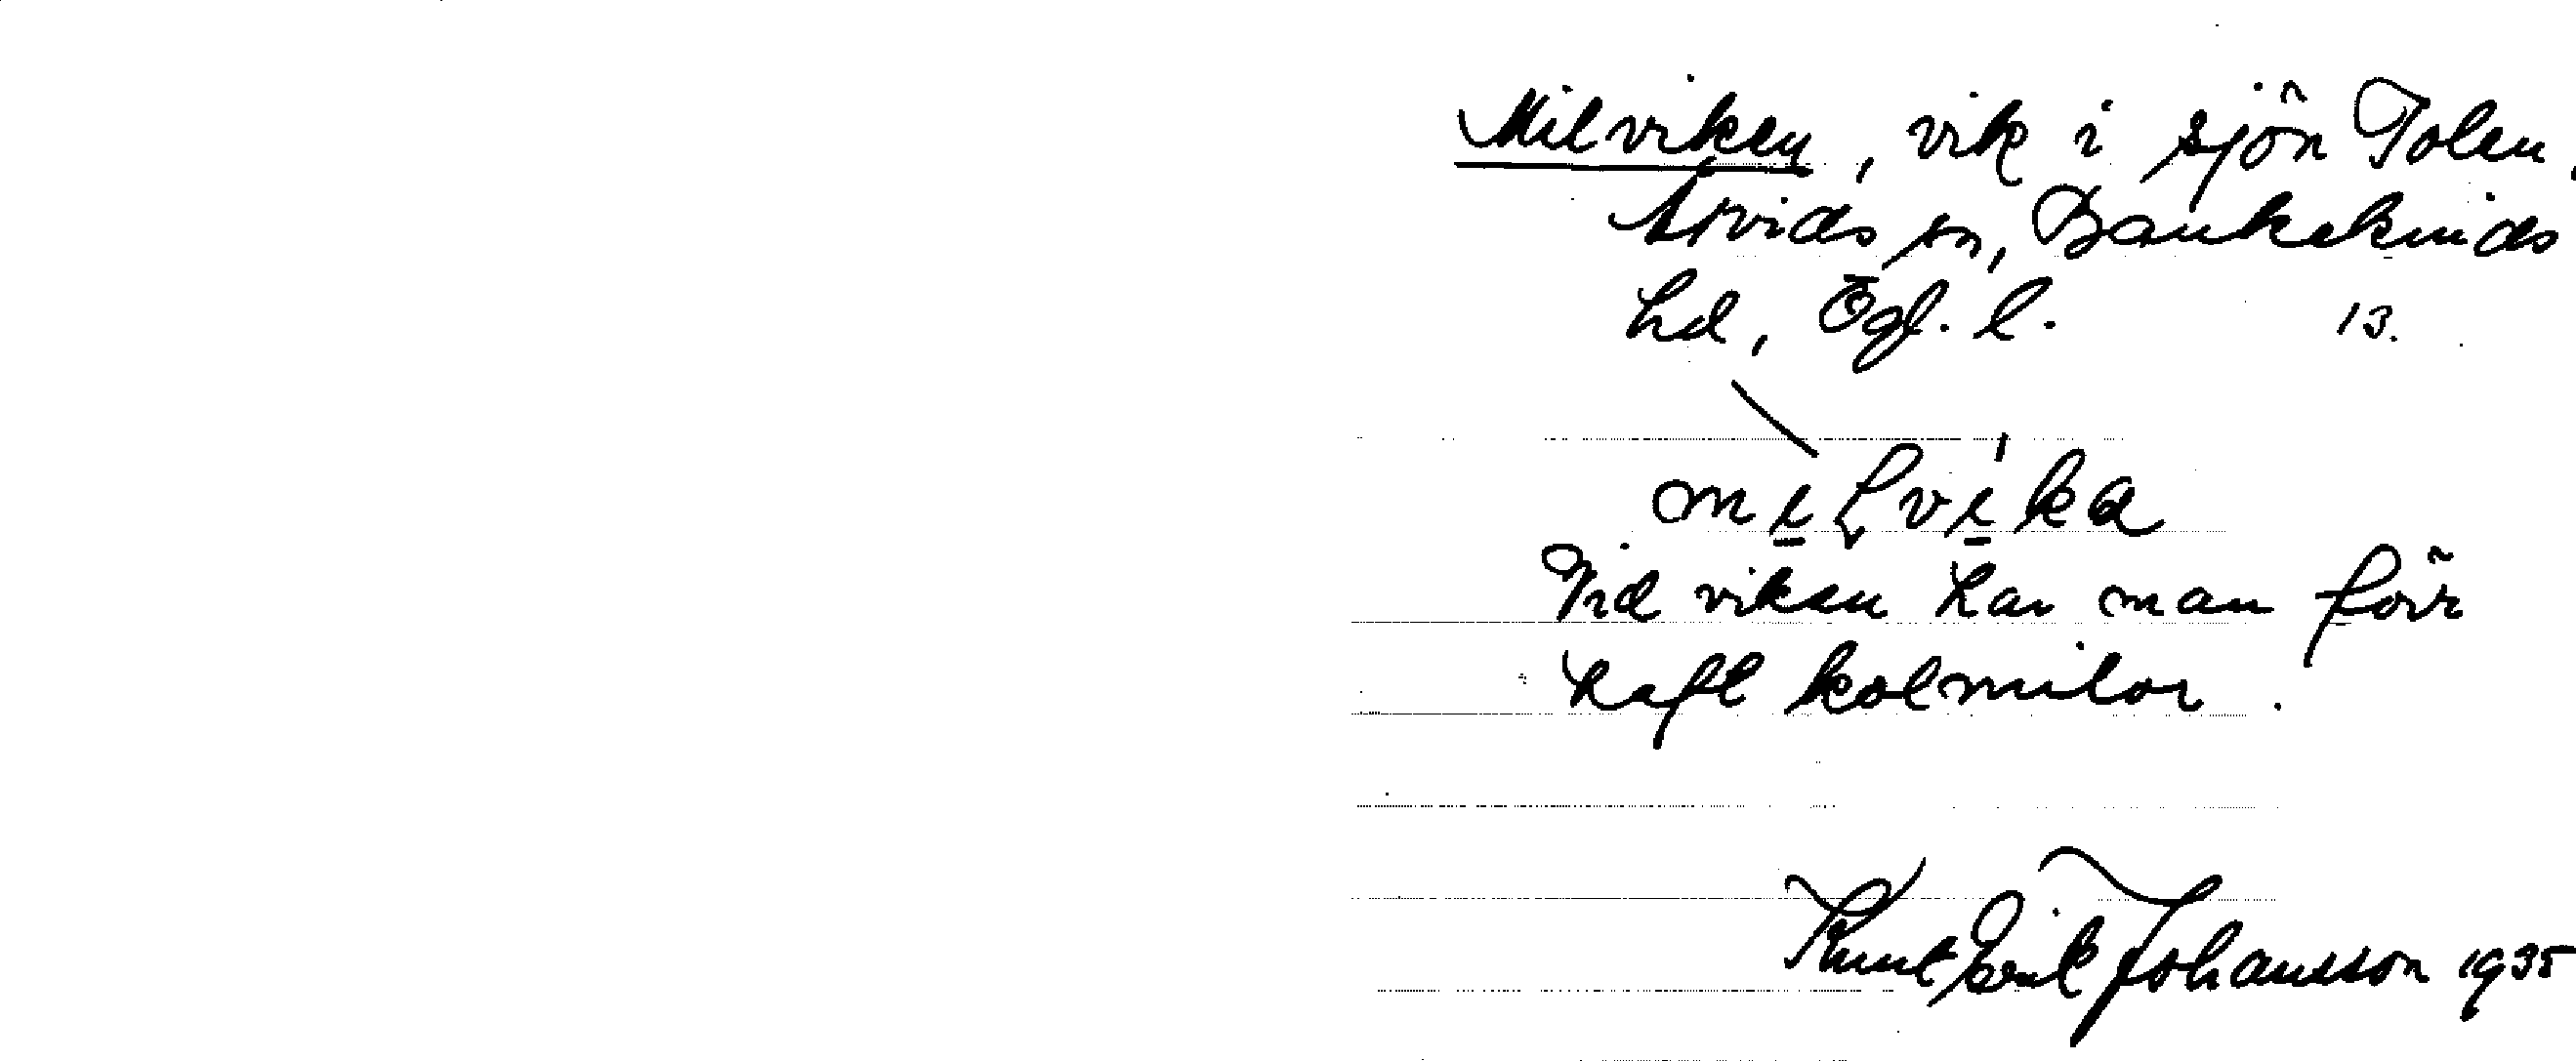 Milviken, vik i sjön Tolen,
Arvids sn, Bankekinds
hd, Ögl. l. 13.
melveka
Vid viken har man förr
haft kolmilor.
Knut Erik Johansson 1935